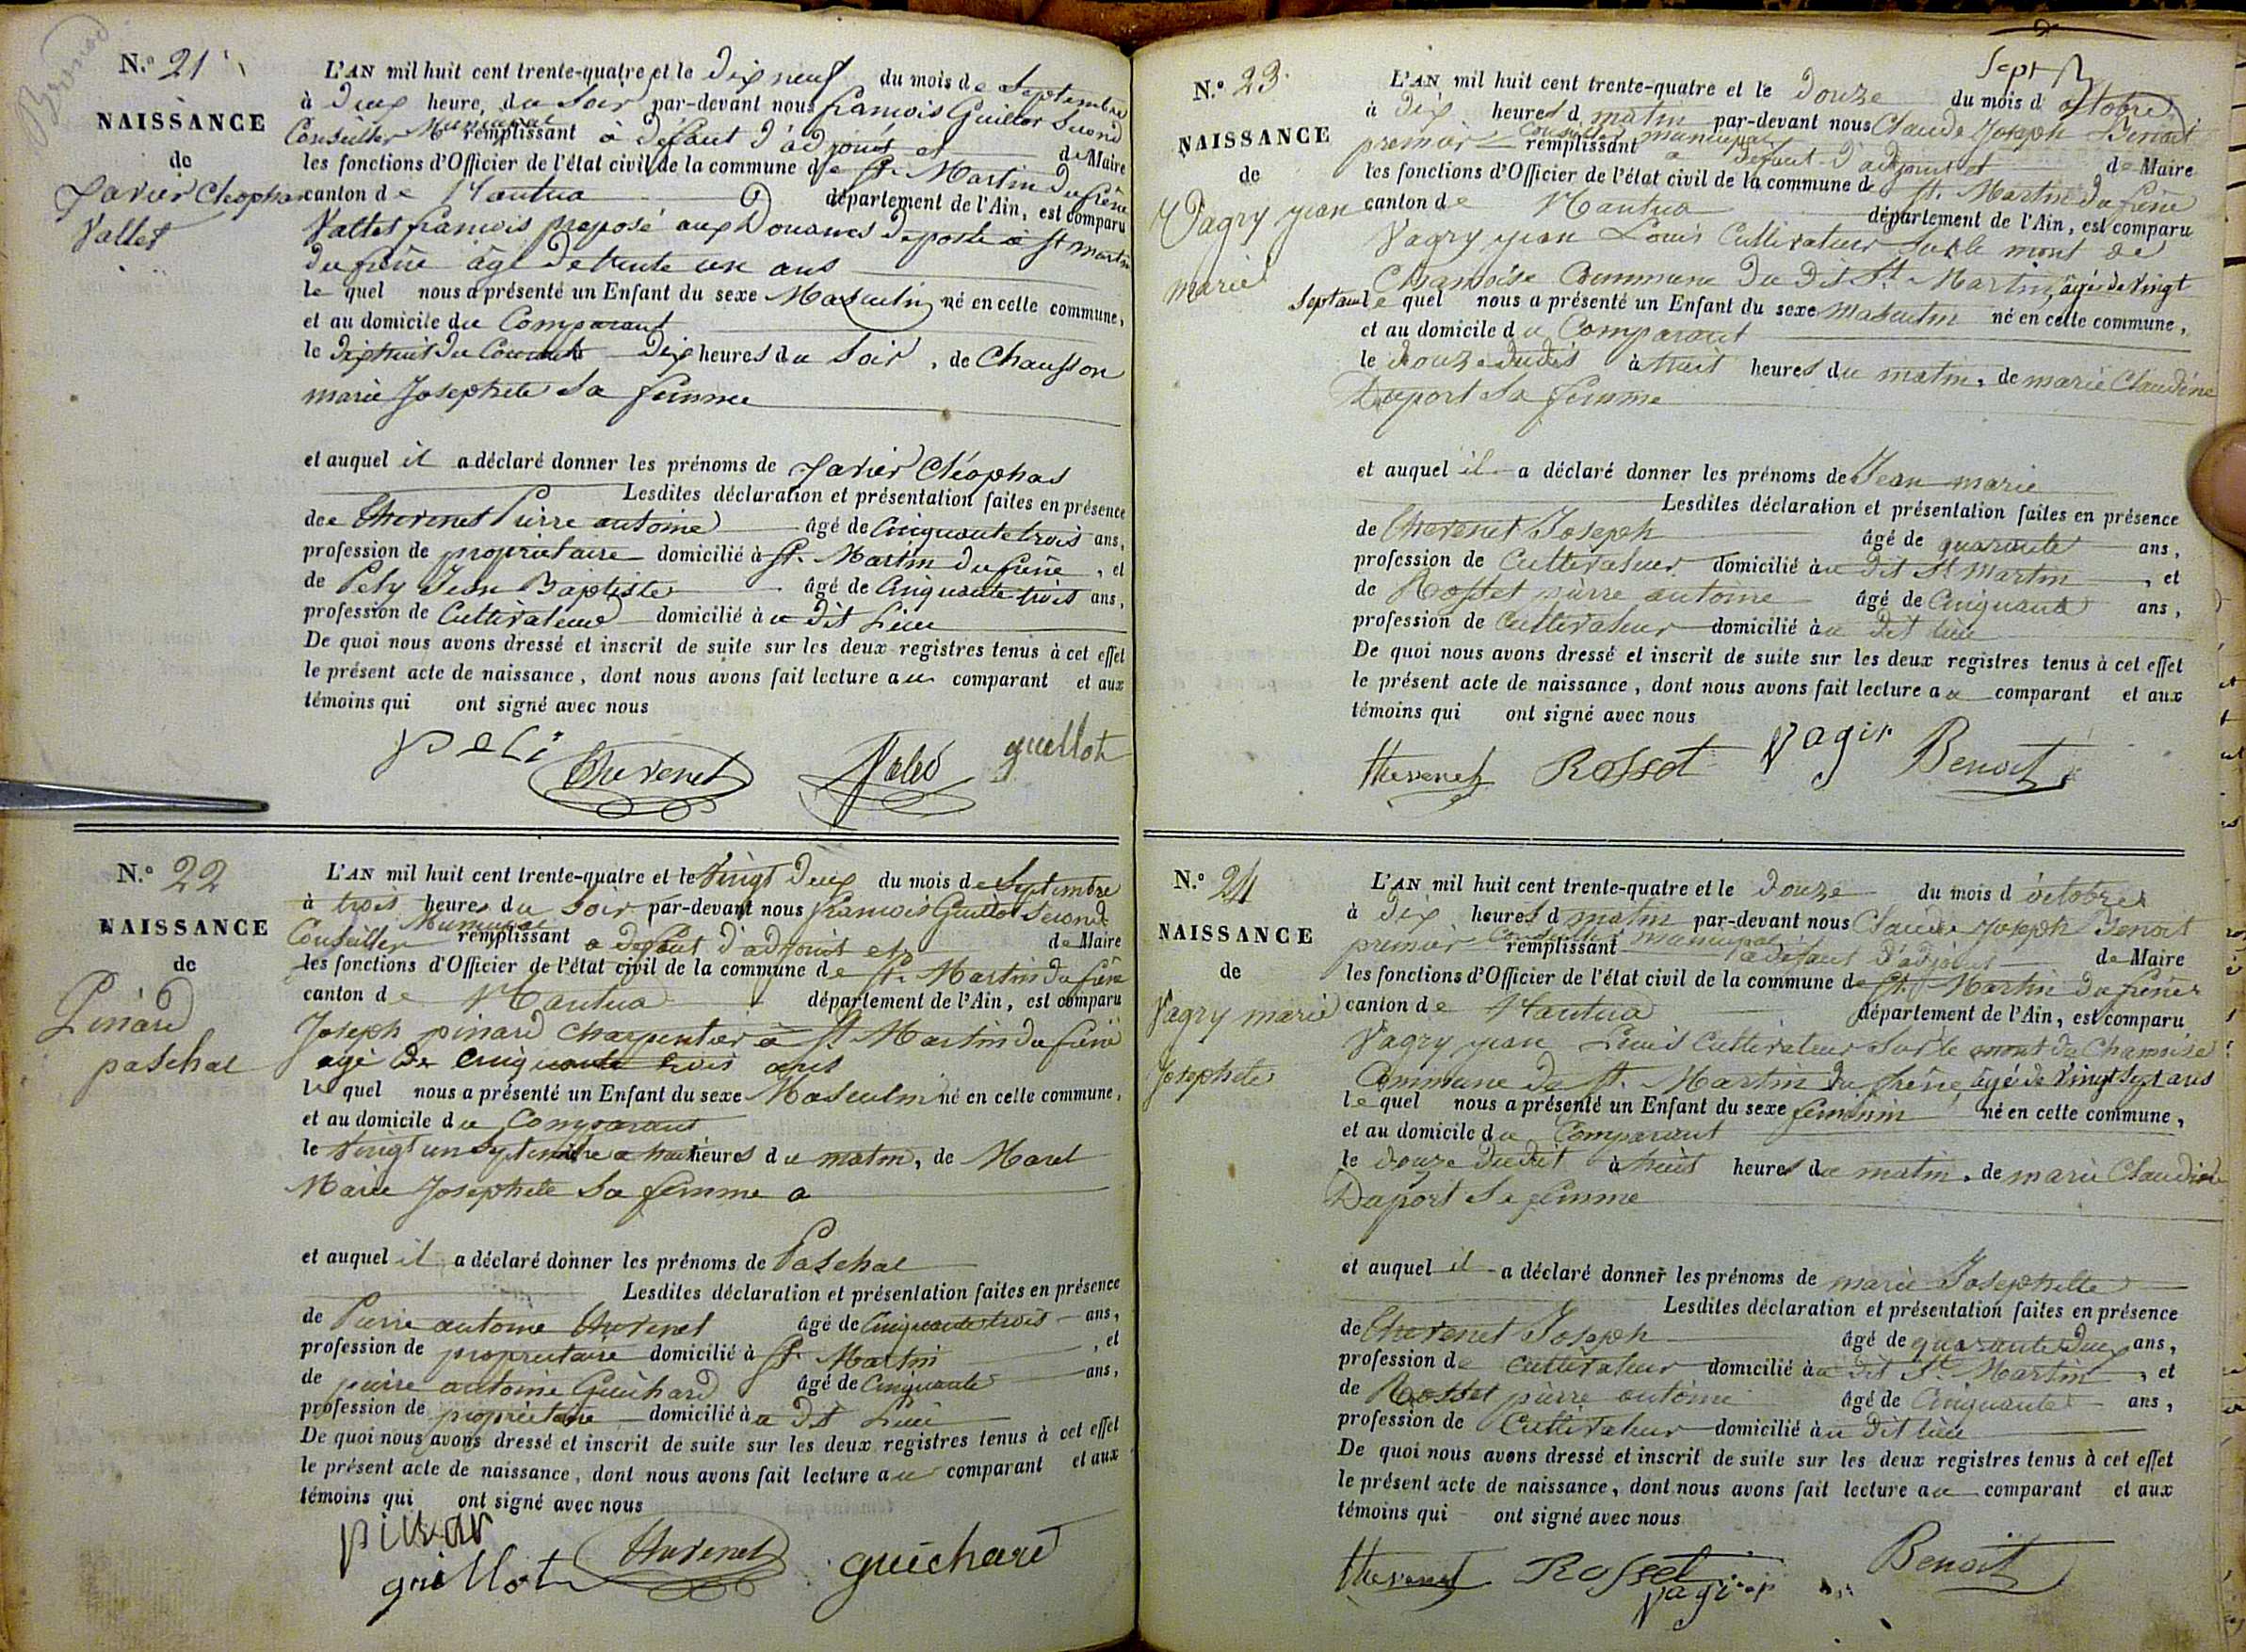 N.o 21
NAISSANCE
de
Xavier Cléophas
Vallet
L'AN mil huit cent trente-quatre et le dix neuf du mois de Septembre
à Deux heure, du Soir par-devant nous francois Guillot Second
Conseiller Municipal remplissant à défaut d'adjoint et de Maire
les fonctions d'Officier de l'état civil de la commune de St. Martin du frêne
canton de Nantua département de l'Ain, est comparu
Vallet francois preposé aux Douanes deposte à St Martin
du frêne âgé de trente un ans
le quel nous a présenté un Enfant du sexe Masculin né en cette commune,
et au domicile du Comparant
le dixhuit du Courant Dix heures du Soir, de Chausson
marie Josephete Sa femme
et auquel il a déclaré donner les prénoms de Xavier Cléophas
Lesdites déclaration et présentation faites en présence
dee thevenet Pierre antoine âgé de Cinquante trois ans,
profession de propriétaire domicilié à St. Martin du frêne, et
de Pety Jean Baptiste âgé de Cinquante trois ans,
profession de Cultivateur domicilié au dit Lieu
De quoi nous avons dressé et inscrit de suite sur les deux registres tenus à cet effet
le présent acte de naissance, dont nous avons fait lecture au comparant et aux
témoins qui ont signé avec nous
peli thevenet guillot
N.o 22
NAISSANCE
de
Pinard
paschal
L'AN mil huit cent trente-quatre et le Vingt Deux du mois de Septembre
à trois heures du Soir par-devant nous francois Guillot Second
Conseiller Municipal remplissant a défaut d'adjoint et de Maire
les fonctions d'Officier de l'état civil de la commune de St. Martin du frêne
canton de Nantua département de l'Ain, est comparu
Joseph pinard Charpentier à St. Martin du frêne
agé de cinquante trois ans
le quel nous a présenté un Enfant du sexe Masculin né en cette commune,
et au domicile du Comparant
le Vingt un Septembre a huit heures du matin, de Morel
Marie Josephete Sa femme a
et auquel il a déclaré donner les prénoms de Paschal
Lesdites déclaration et présentation faites en présence
de Pierre antoine thevenet âgé de Cinquante trois ans,
profession de propriétaire domicilié à St. Martin, et
de pierre antoine Guichard âgé de Cinquante ans,
profession de propriétaire domicilié au dit Lieu
De quoi nous avons dressé et inscrit de suite sur les deux registres tenus à cet effet
le présent acte de naissance, dont nous avons fait lecture au comparant et aux
témoins qui ont signé avec nous
pinar
guillot thevenet guichard
N.o 23
NAISSANCE
de
Vagry jean
marie
Sept
L'AN mil huit cent trente-quatre et le Douze du mois d octobre
à Dix heures d matin par-devant nous Claude Joseph Benoit
premier Conseiller municipal remplissant a défaut d'adjoint et de Maire
les fonctions d'Officier de l'état civil de la commune de St. Martin du frêne
canton de Nantua département de l'Ain, est comparu
Vagry jean Louis Cultivateur sur le mont de
Chamoise Commune du dit St. Martin, âgé de Vingt
Sept ans le quel nous a présenté un Enfant du sexe masculin né en cette commune,
et au domicile du Comparant
le douze dudit à huit heures du matin, de marie Claudine
Duport Sa femme
et auquel il a déclaré donner les prénoms de Jean marie
Lesdites déclaration et présentation faites en présence
de thevenet Joseph âgé de quarante ans,
profession de Cultivateur domicilié au dit St Martin, et
de Rosset pierre antoine âgé de Cinquante ans,
profession de Cultivateur domicilié au dit lieu
De quoi nous avons dressé et inscrit de suite sur les deux registres tenus à cet effet
le présent acte de naissance, dont nous avons fait lecture au comparant et aux
témoins qui ont signé avec nous
thevenet Rosset Vagir Benoit
N.o 24
NAISSANCE
de
Vagry marie
Josephete
L'AN mil huit cent trente-quatre et le douze du mois d octobre
à Dix heures d matin par-devant nous Claude Joseph Benoit
premier Conseiller municipal remplissant a défaut d'adjoint de Maire
les fonctions d'Officier de l'état civil de la commune de St. Martin du frêne
canton de Nantua département de l'Ain, est comparu
Vagry jean Louis Cultivateur Sur le mont du Chamoise
Commune de St. Martin du frêne, âgé de Vingt Sept ans
le quel nous a présenté un Enfant du sexe feminin né en cette commune,
et au domicile du Comparant
le douze dudit à huit heures du matin, de marie Claudine
Duport Sa femme
et auquel il a déclaré donner les prénoms de marie Josephette
Lesdites déclaration et présentation faites en présence
de thevenet Joseph âgé de quarante Deux ans,
profession de Cultivateur domicilié au dit St. Martin, et
de Rosset pierre antoine âgé de Cinquante ans,
profession de Cultivateur domicilié au dit lieu
De quoi nous avons dressé et inscrit de suite sur les deux registres tenus à cet effet
le présent acte de naissance, dont nous avons fait lecture au comparant et aux
témoins qui ont signé avec nous
thevenet Rosset Benoit